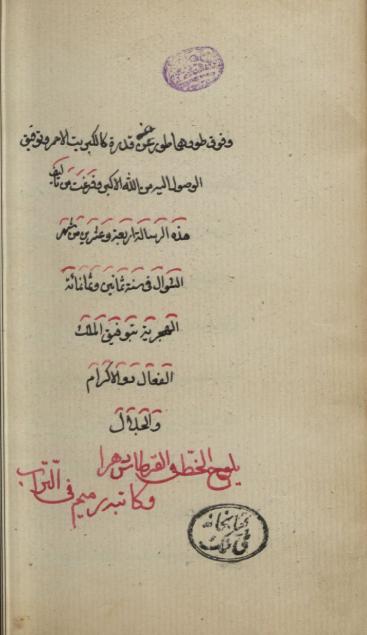 وفوق طورها طور عن قدرة كالكبريت الاحمر وتوفيق
الوصول اليه من الله الاكبر وفرغت من تاليف
هذه الرسالة اربعة وعشرين من شهر
الشوال فى سنة ثمانين وثمانمائة
الهجرية بتوفيق الملك
الفعال ذو الاكرام
والجلال
يلوح الخط فى القرطاس دهرا
وكاتبه رميم فى التراب
كتابخانه
ملى ملك